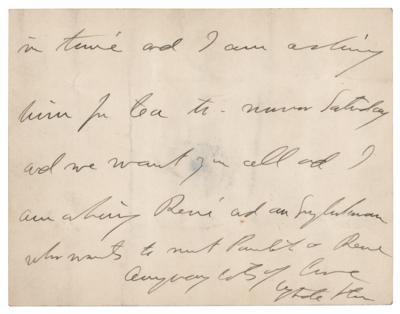 in time and I am asking
him for tea to-morrow Saturday
and we want you all and I
am asking René and an Englishman
who wants to meet Pavlik & René
Anyway lots of love